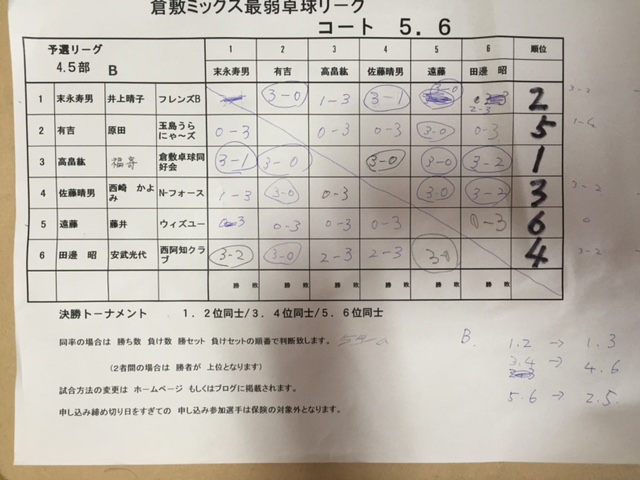 倉敷ミックス最弱卓球リーグ
コート 5.6
予選リーグ 1 2 3 4 5 6 順位
4.5部 B 末永寿男 有吉 高畠紘 佐藤晴男 遠藤 田邊 昭
1 末永寿男 井上晴子 フレンズB 3-0 1-3 3-1 3-0 2-3 2
2 有吉 原田 玉島うらにゃ~ズ 0-3 0-3 0-3 0-3 0-3 5
3 高畠紘 倉敷卓球同好会 3-1 3-0 3-0 3-0 3-2 1
4 佐藤晴男 西崎 かよみ N-フォース 1-3 3-0 0-3 3-0 3-2 3
5 遠藤 藤井 ウィズユー 0-3 0-3 0-3 0-3 0-3 6
6 田邊 昭 安武光代 西阿知クラブ 3-2 3-0 2-3 2-3 3-0 4
勝 敗 勝 敗 勝 敗 勝 敗 勝 敗 勝 敗
決勝トーナメント 1.2位同士/3.4位同士/5.6位同士
同率の場合は 勝ち数 負け数 勝セット 負けセットの順番で判断致します。
(2者間の場合は 勝者が 上位となります)
試合方法の変更は ホームページ もしくはブログに掲載されます。
申し込み締め切り日をすぎての 申し込み参加選手は保険の対象外となります。
B. 1.2 → 1.3
3.4 → 4.6
5.6 → 2.5.